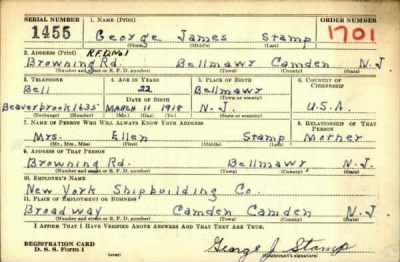 SERIAL NUMBER 1. NAME (Print) ORDER NUMBER
1455 George James Stamp 1701
(First) (Middle) (Last)
2. ADDRESS (Print) R.F.D. No 1
Browning Rd. Bellmawr Camden N.J
(Number and street or R. F. D. number) (Town) (County) (State)
3. TELEPHONE 4. AGE IN YEARS 5. PLACE OF BIRTH 6. COUNTRY OF CITIZENSHIP
Bell 22 Bellmawr
DATE OF BIRTH (Town or county)
Beaverbrook 1635 MARCH 11 1918 N.J. U.S.A.
(Exchange) (Number) (Mo.) (Day) (Yr.) (State or country)
7. NAME OF PERSON WHO WILL ALWAYS KNOW YOUR ADDRESS 8. RELATIONSHIP OF THAT PERSON
Mrs. Ellen Stamp Mother
(Mr., Mrs., Miss) (First) (Middle) (Last)
9. ADDRESS OF THAT PERSON
Browning Rd. Bellmawr N.J.
(Number and street or R. F. D. number) (Town) (County) (State)
10. EMPLOYER'S NAME
New York Shipbuilding Co.
11. PLACE OF EMPLOYMENT OR BUSINESS
Broadway Camden Camden N.J
(Number and street or R. F. D. number) (Town) (County) (State)
I AFFIRM THAT I HAVE VERIFIED ABOVE ANSWERS AND THAT THEY ARE TRUE.
REGISTRATION CARD
D. S. S. Form 1 George J. Stamp
(Registrant's signature)